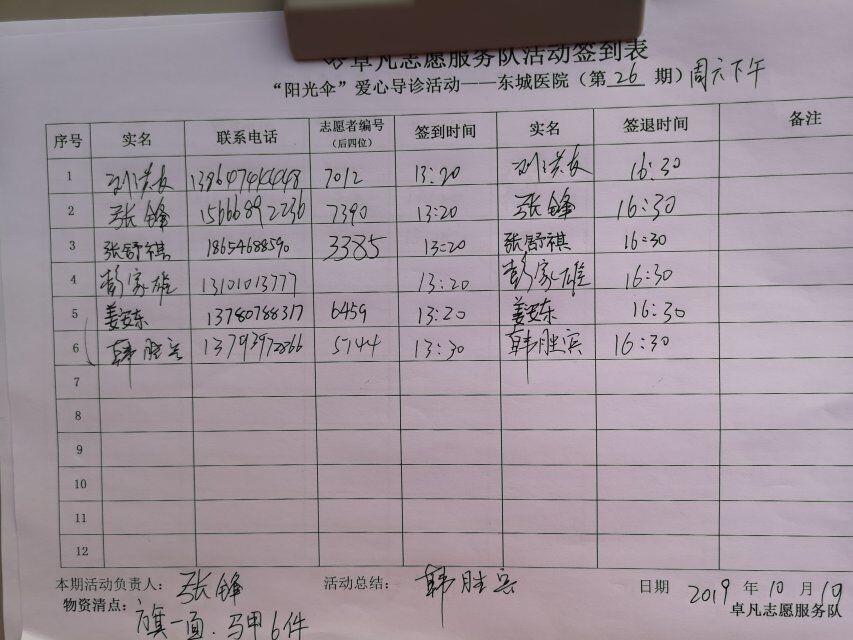 卓凡志愿服务队活动签到表
“阳光伞”爱心导诊活动——东城医院（第 26 期）周六下午
序号 实名 联系电话 志愿者编号（后四位） 签到时间 实名 签退时间 备注
1 7012 13:20 16:30
2 张锋 15666892236 7390 13:20 张锋 16:30
3 张舒祺 1865468590 3385 13:20 张舒祺 16:30
4 彭家雄 13101013777 13:20 彭家雄 16:30
5 姜安东 13780788317 6459 13:20 姜安东 16:30
6 韩胜宾 13793972866 5744 13:30 韩胜宾 16:30
7
8
9
10
11
12
本期活动负责人： 张锋 活动总结： 韩胜宾 日期 2019 年 10 月 19
物资清点： 旗一面．马甲6件 卓凡志愿服务队